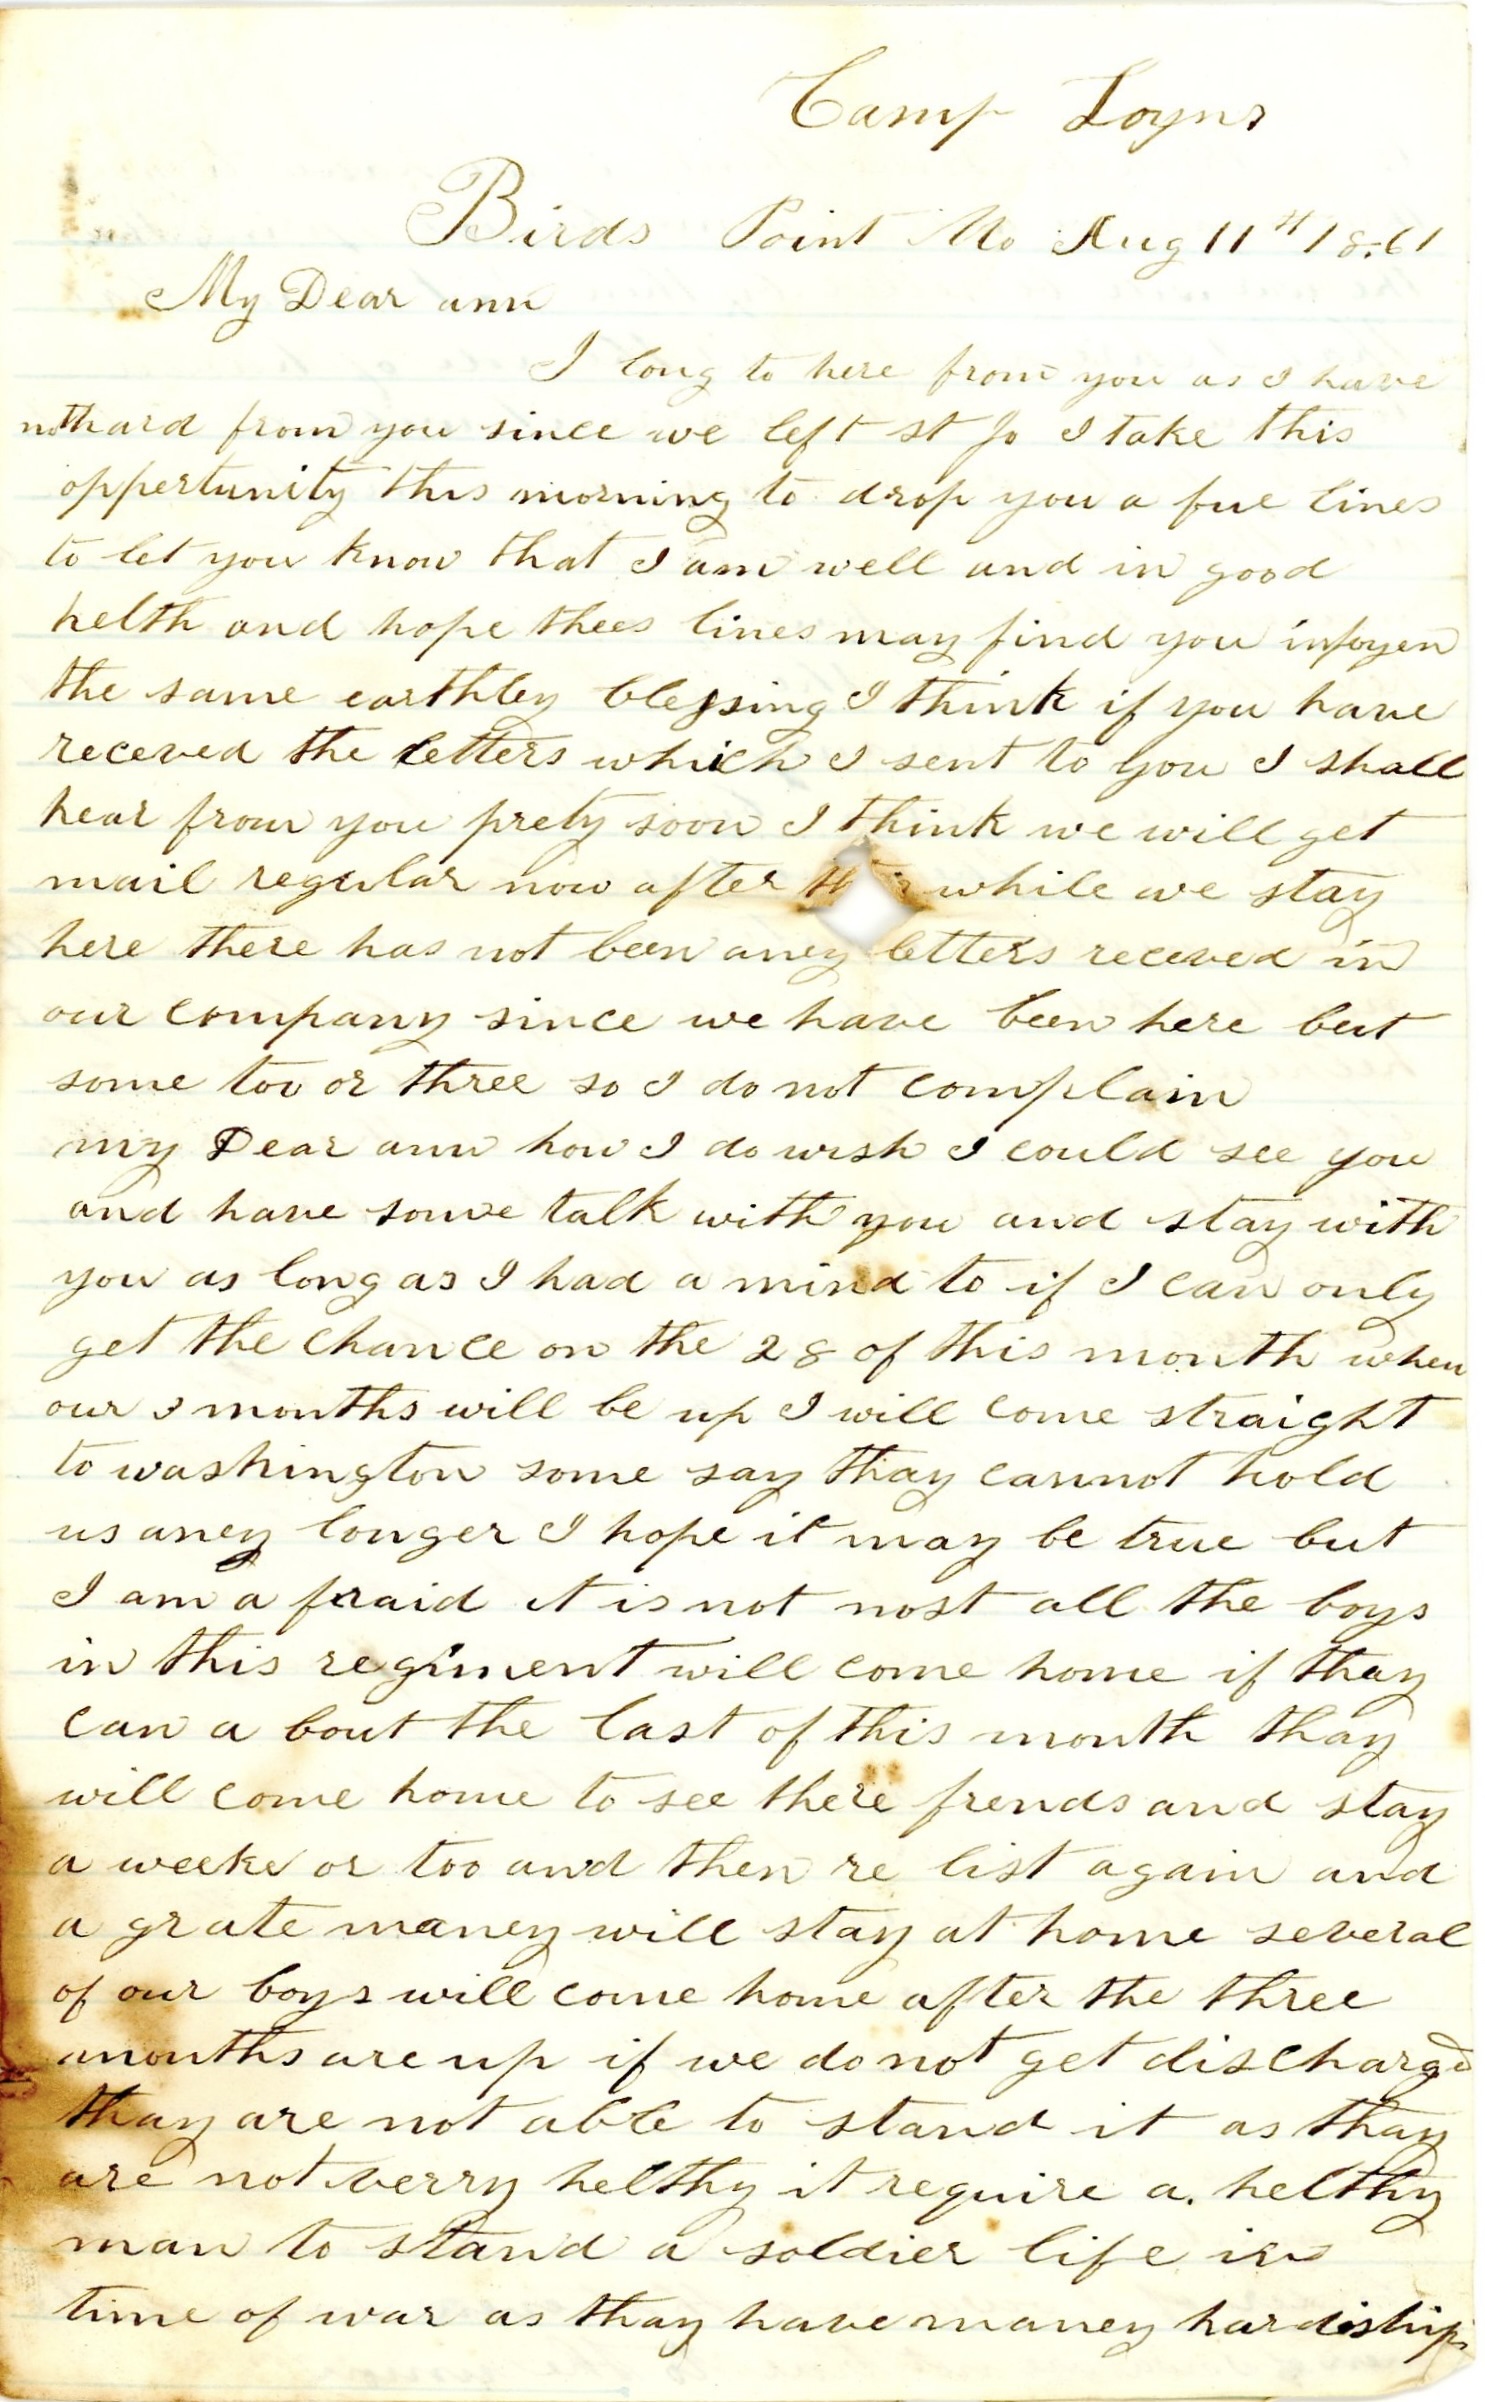 Camp Loyns
Birds Point Mo Aug 11th 1861
My Dear ann
I long to here from you as I have
not hard from you since we left st Jo I take this
oppertunity this morning to drop you a fue lines
to let you know that I am well and in good
helth and hope thees lines may find you injoyen
the same earthley blessing I think if you have
receved the letters which I sent to you I shall
hear from you prety soon I think we will get
mail regular now after while we stay
here there has not been aney letters receved in
our company since we have been here but
some too or three so I do not complain
my Dear ann how I do wish I could see you
and have some talk with you and stay with
you as long as I had a mind to if I can only
get the chance on the 28 of this month when
our 3 months will be up I will come straight
to washington some say thay cannot hold
us aney longer I hope it may be true but
I am a fraid it is not most all the boys
in this regiment will come home if thay
can a bout the last of this month thay
will come home to see there frends and stay
a weeke or too and then re list again and
a grate maney will stay at home several
of our boys will come home after the three
months are up if we do not get dischargd
thay are not able to stand it as thay
are not verry helthy it require a helthy
man to stand a soldier life in
time of war as thay have maney hardiships